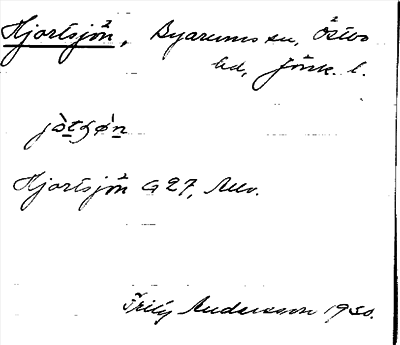 Hjortsjön, Byarums sn, Östbo
hd, Jönk. l.
Hjortsjön G 27,
Fritz Andersson 1930.